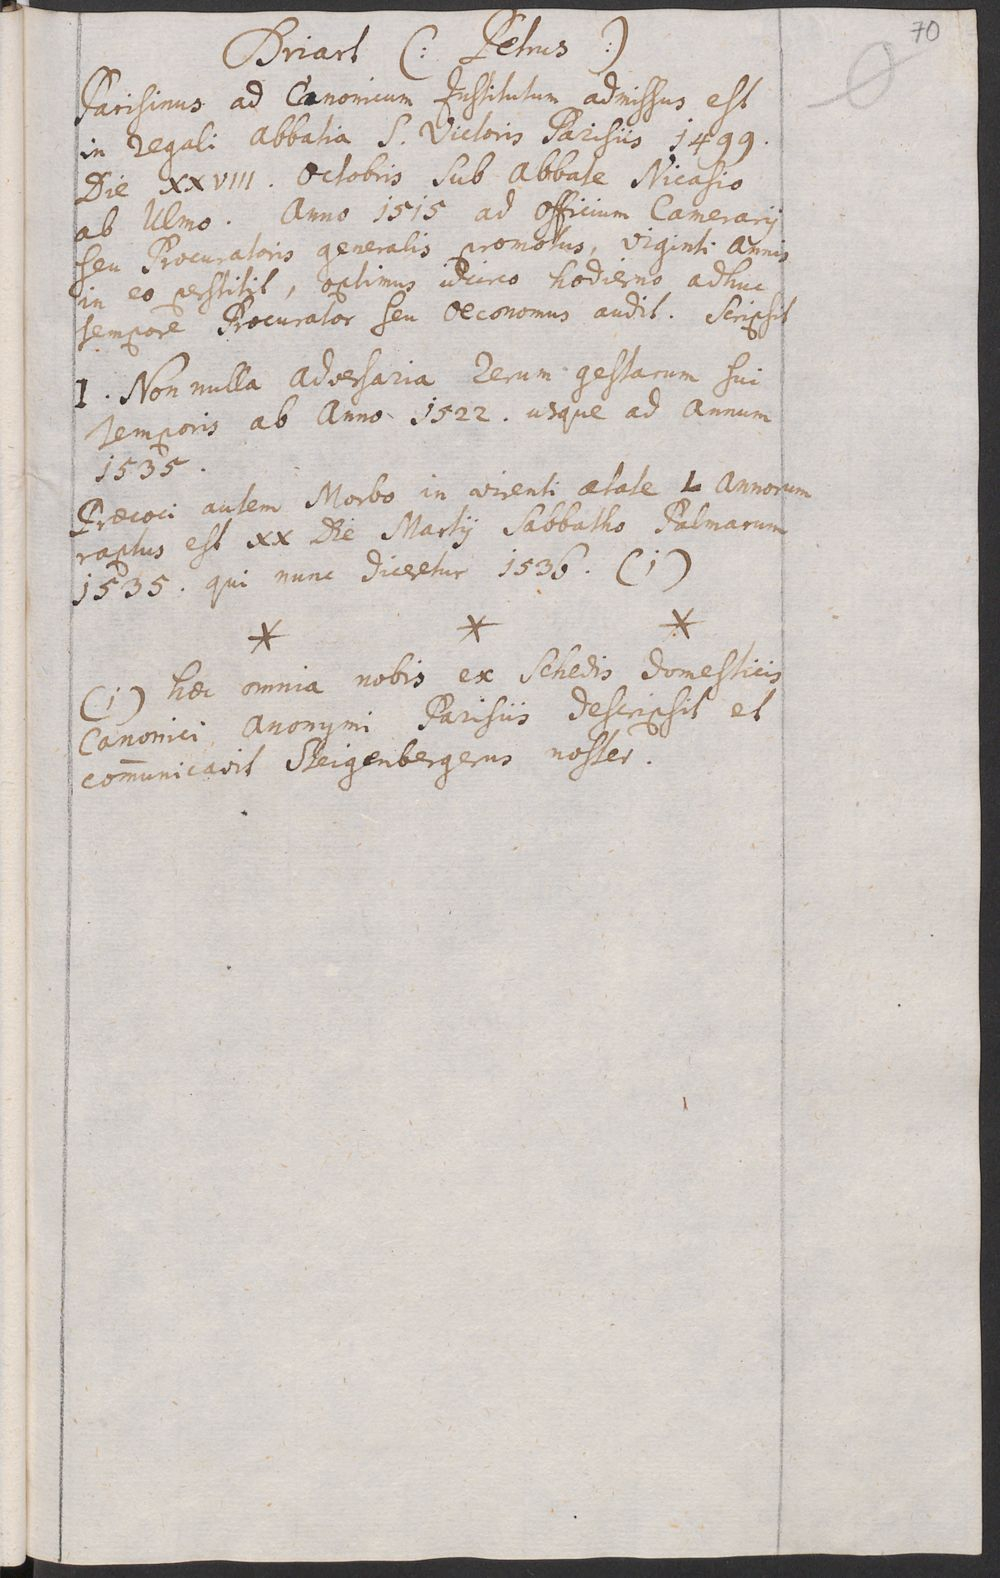 70
Briart (: Petrus :)
Parisinus ad Canonicum Institutum admissus est
in regali abbatia S. Victoris Parisiis 1499.
Die XXVIII. Octobris sub Abbate Nicasio
ab Ulmo. Anno 1515 ad officium Camerarij
seu Procuratoris generalis promotus, viginti annis
in eo perstitit, optimus idcirco hodierno adhuc
tempore Procurator seu Oeconomus audit. Scripsit
I. Non nulla adversaria rerum gestarum sui
temporis ab Anno 1522. usque ad annum
1535.
Præcoci autem Morbo in virenti ætate L annorum
raptus est XX Die Martij Sabbatho Palmarum
1535. qui nunc diceretur 1536. (1)
* * *
(1) hæc omnia nobis ex Schedis domesticis
Canonici Anonymi Parisiis descripsit et
com̄unicavit Steigenbergerus noster.